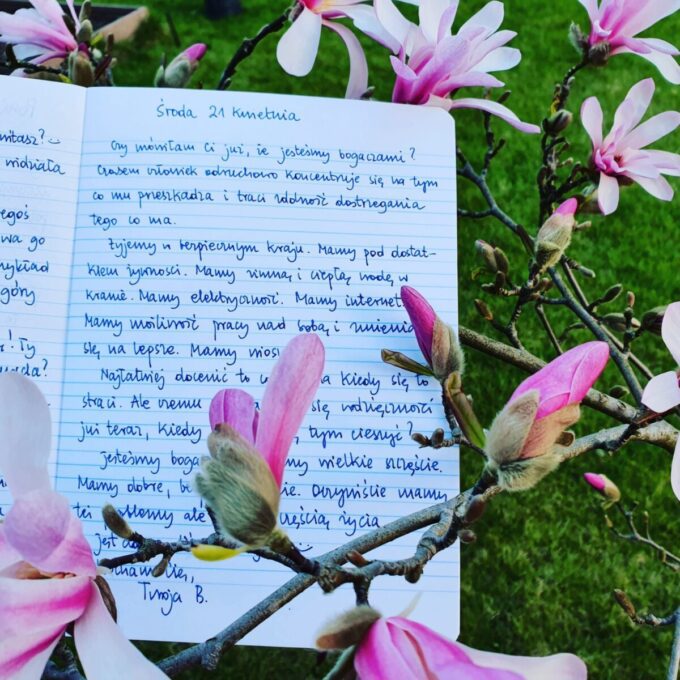 widziała
egoś
wa go
ykład
góry
! Ty
Środa 21 kwietnia
Czy mówiłam Ci już, że jesteśmy bogaczami?
Czasem człowiek odruchowo koncentruje się na tym
co mu przeszkadza i traci zdolność dostrzegania
tego co ma.
Żyjemy w bezpiecznym kraju. Mamy pod dostat-
kiem żywności. Mamy zimną i ciepłą wodę w
kranie. Mamy elektryczność. Mamy internet.
Mamy możliwość pracy nad sobą i zmienia
się na lepsze. Mamy wios
Najłatwiej docenić to kiedy się to
straci. Ale czemu się wdzięczności
już teraz, kiedy tym cieszyć?
Jesteśmy boga my wielkie szczęście.
Mamy dobre, be ie. Oczywiście mamy
też problemy ale częścią życia
jest
Kocham Cię,
Twoja B.